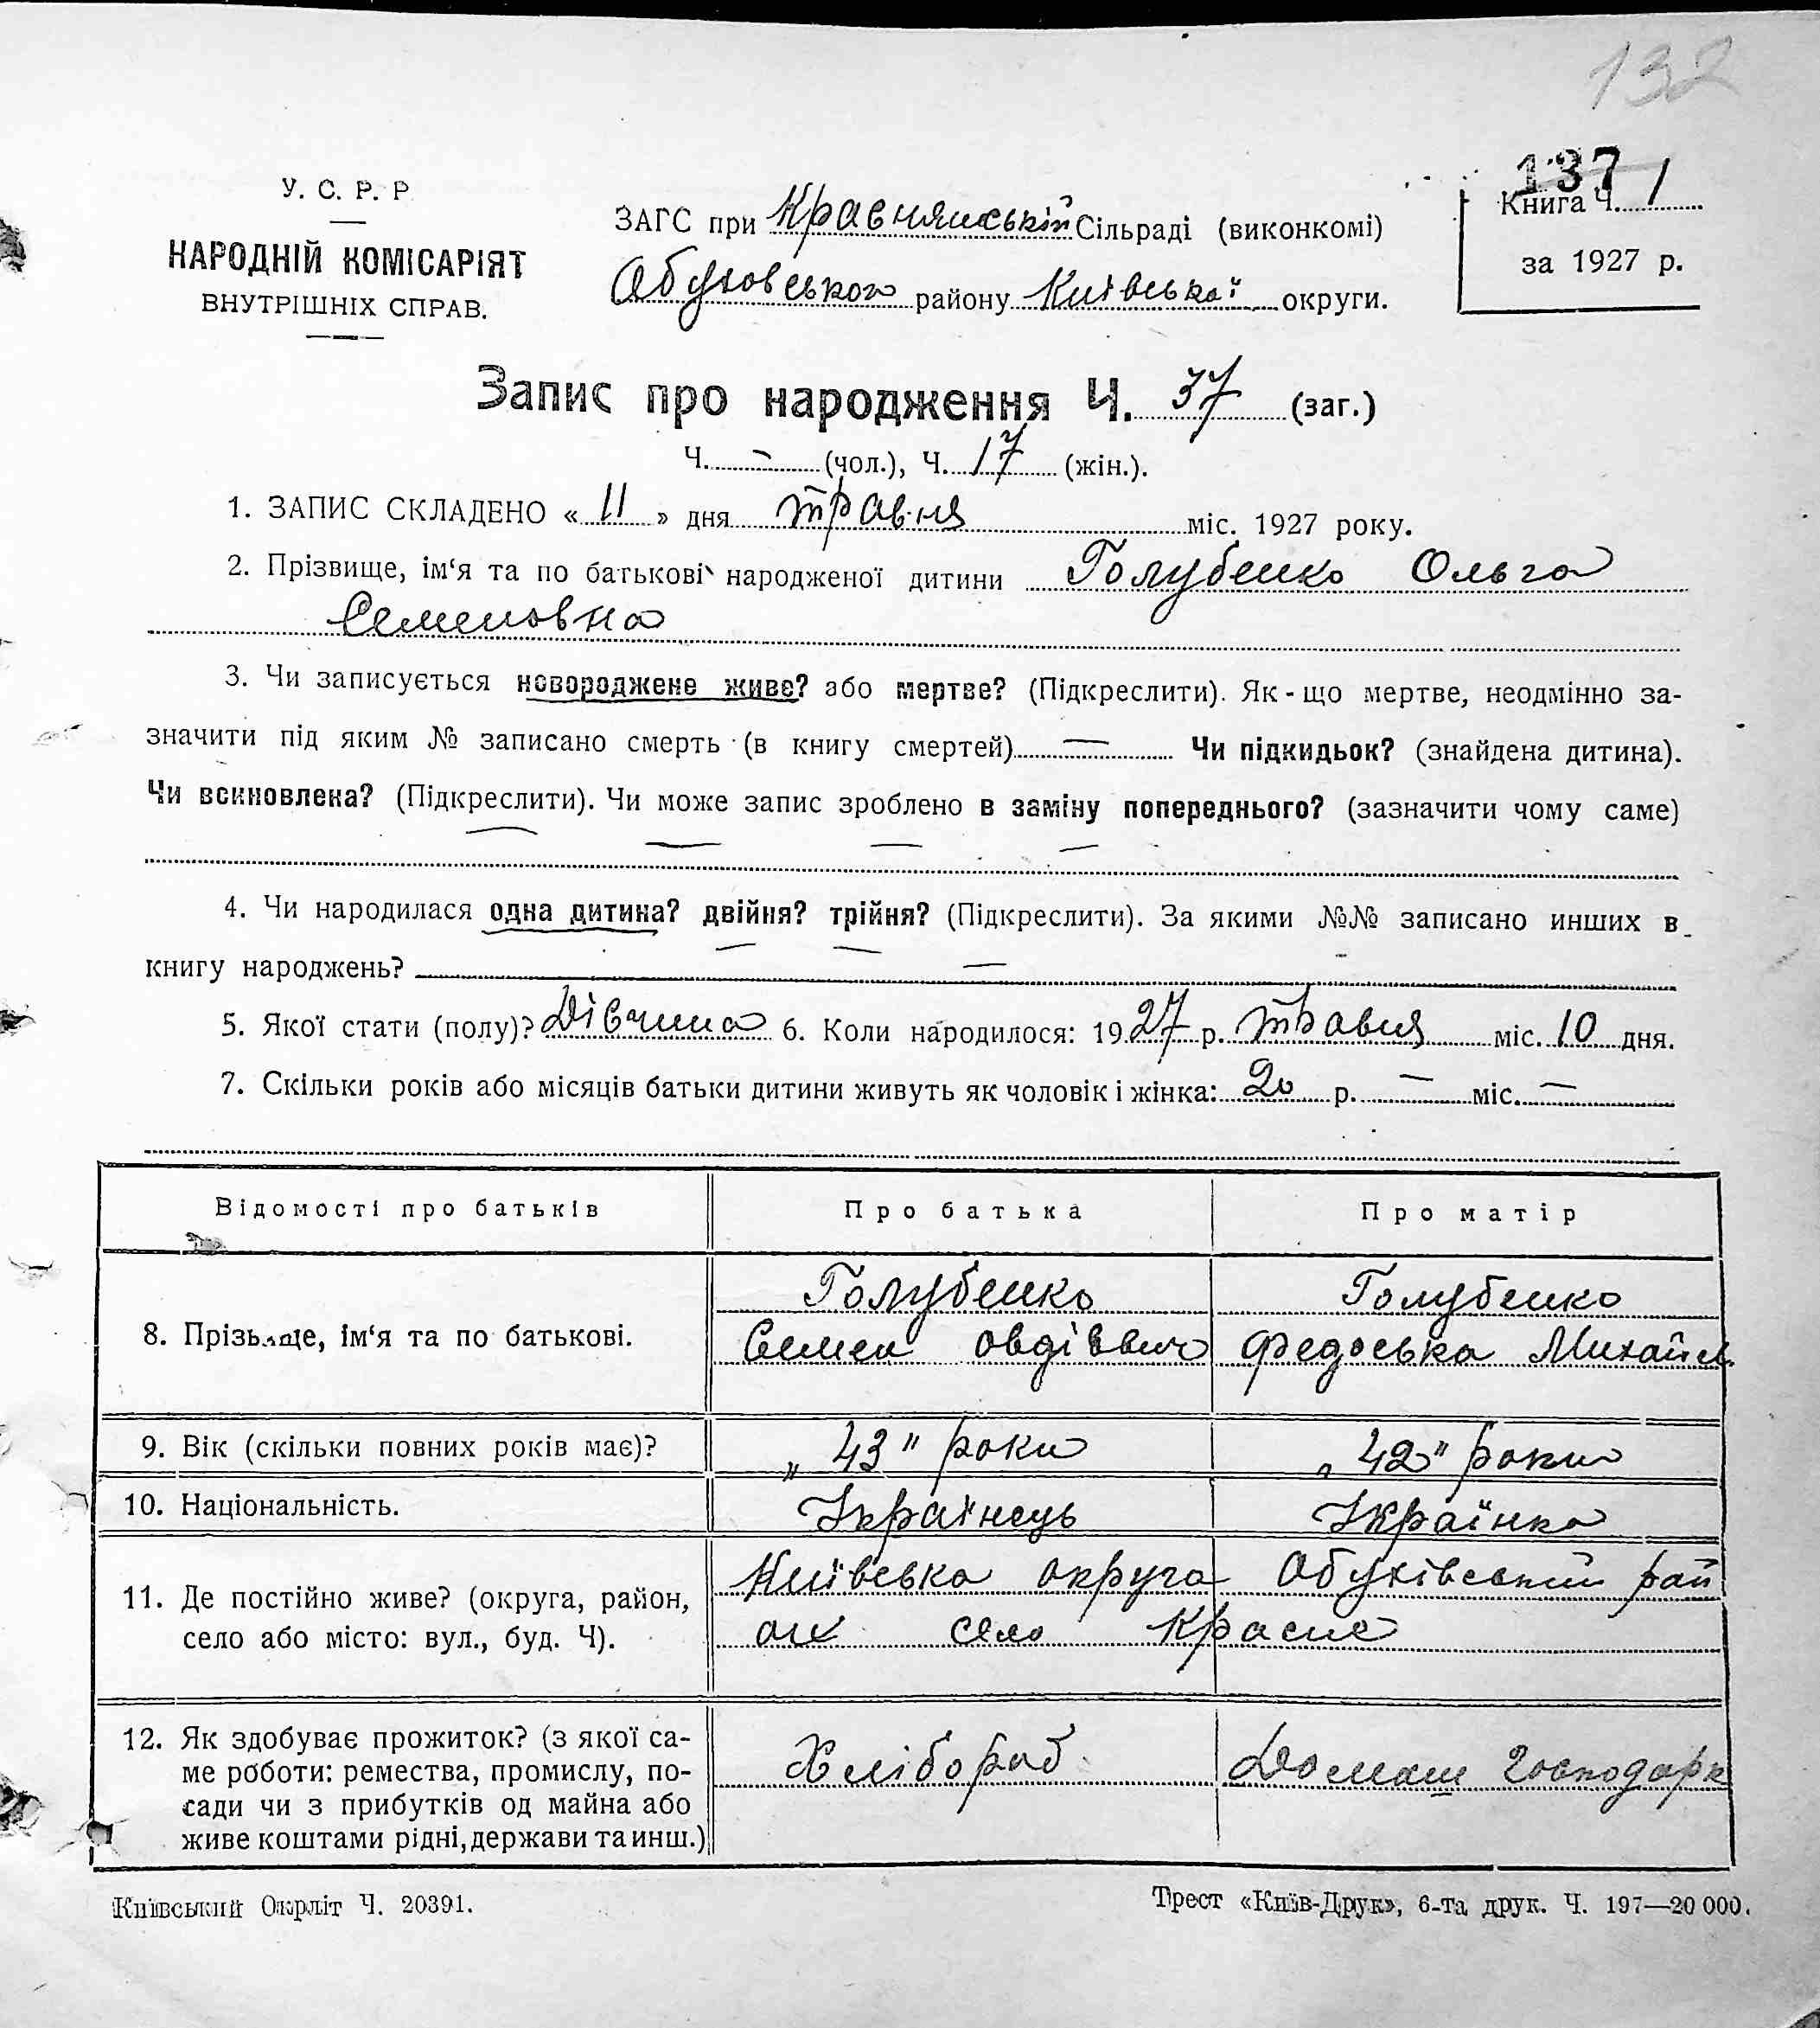 132
137
У. С. Р. Р
НАРОДНІЙ КОМІСАРІЯТ
ВНУТРІШНІХ СПРАВ.
ЗАГС при Сільраді (виконкомі)
Обуховського району Київської округи.
Книга Ч. 1
за 1927 р.
Запис про народження Ч. 37 (заг.)
Ч. - (чол.), Ч. 17 (жін.).
1. ЗАПИС СКЛАДЕНО « 11 » дня травня міс. 1927 року.
2. Прізвище, ім‘я та по батькові народженої дитини Голубенко Ольга
Семеновна
3. Чи записується новороджене живе? або мертве? (Підкреслити). Як-що мертве, неодмінно за-
значити під яким № записано смерть (в книгу смертей) — Чи підкидьок? (знайдена дитина).
Чи всиновлена? (Підкреслити). Чи може запис зроблено в заміну попереднього? (зазначити чому саме)
— — — —
4. Чи народилася одна дитина? двійня? трійня? (Підкреслити). За якими №№ записано инших в
книгу народжень? —
5. Якої стати (полу)? Дівчина 6. Коли народилося: 1927 р. травня міс. 10 дня.
7. Скільки років або місяців батьки дитини живуть як чоловік і жінка: 20 р. — міс. —
Відомості про батьків Про батька Про матір
8. Прізвище, ім‘я та по батькові. Голубенко Голубенко
Семен Овдієвич Федоська Михайл
9. Вік (скільки повних років має)? „43" роки „42" роки
10. Національність. Українець Українка
11. Де постійно живе? (округа, район, Київська округа Обухівський рай
село або місто: вул., буд. Ч). он село Красне
12. Як здобуває прожиток? (з якої са- Хлібороб Домаш господарк
ме роботи: ремества, промислу, по-
сади чи з прибутків од майна або
живе коштами рідні, держави та инш.)
Київський Окрліт Ч. 20391. Трест «Київ-Друк», 6-та друк. Ч. 197—20 000.